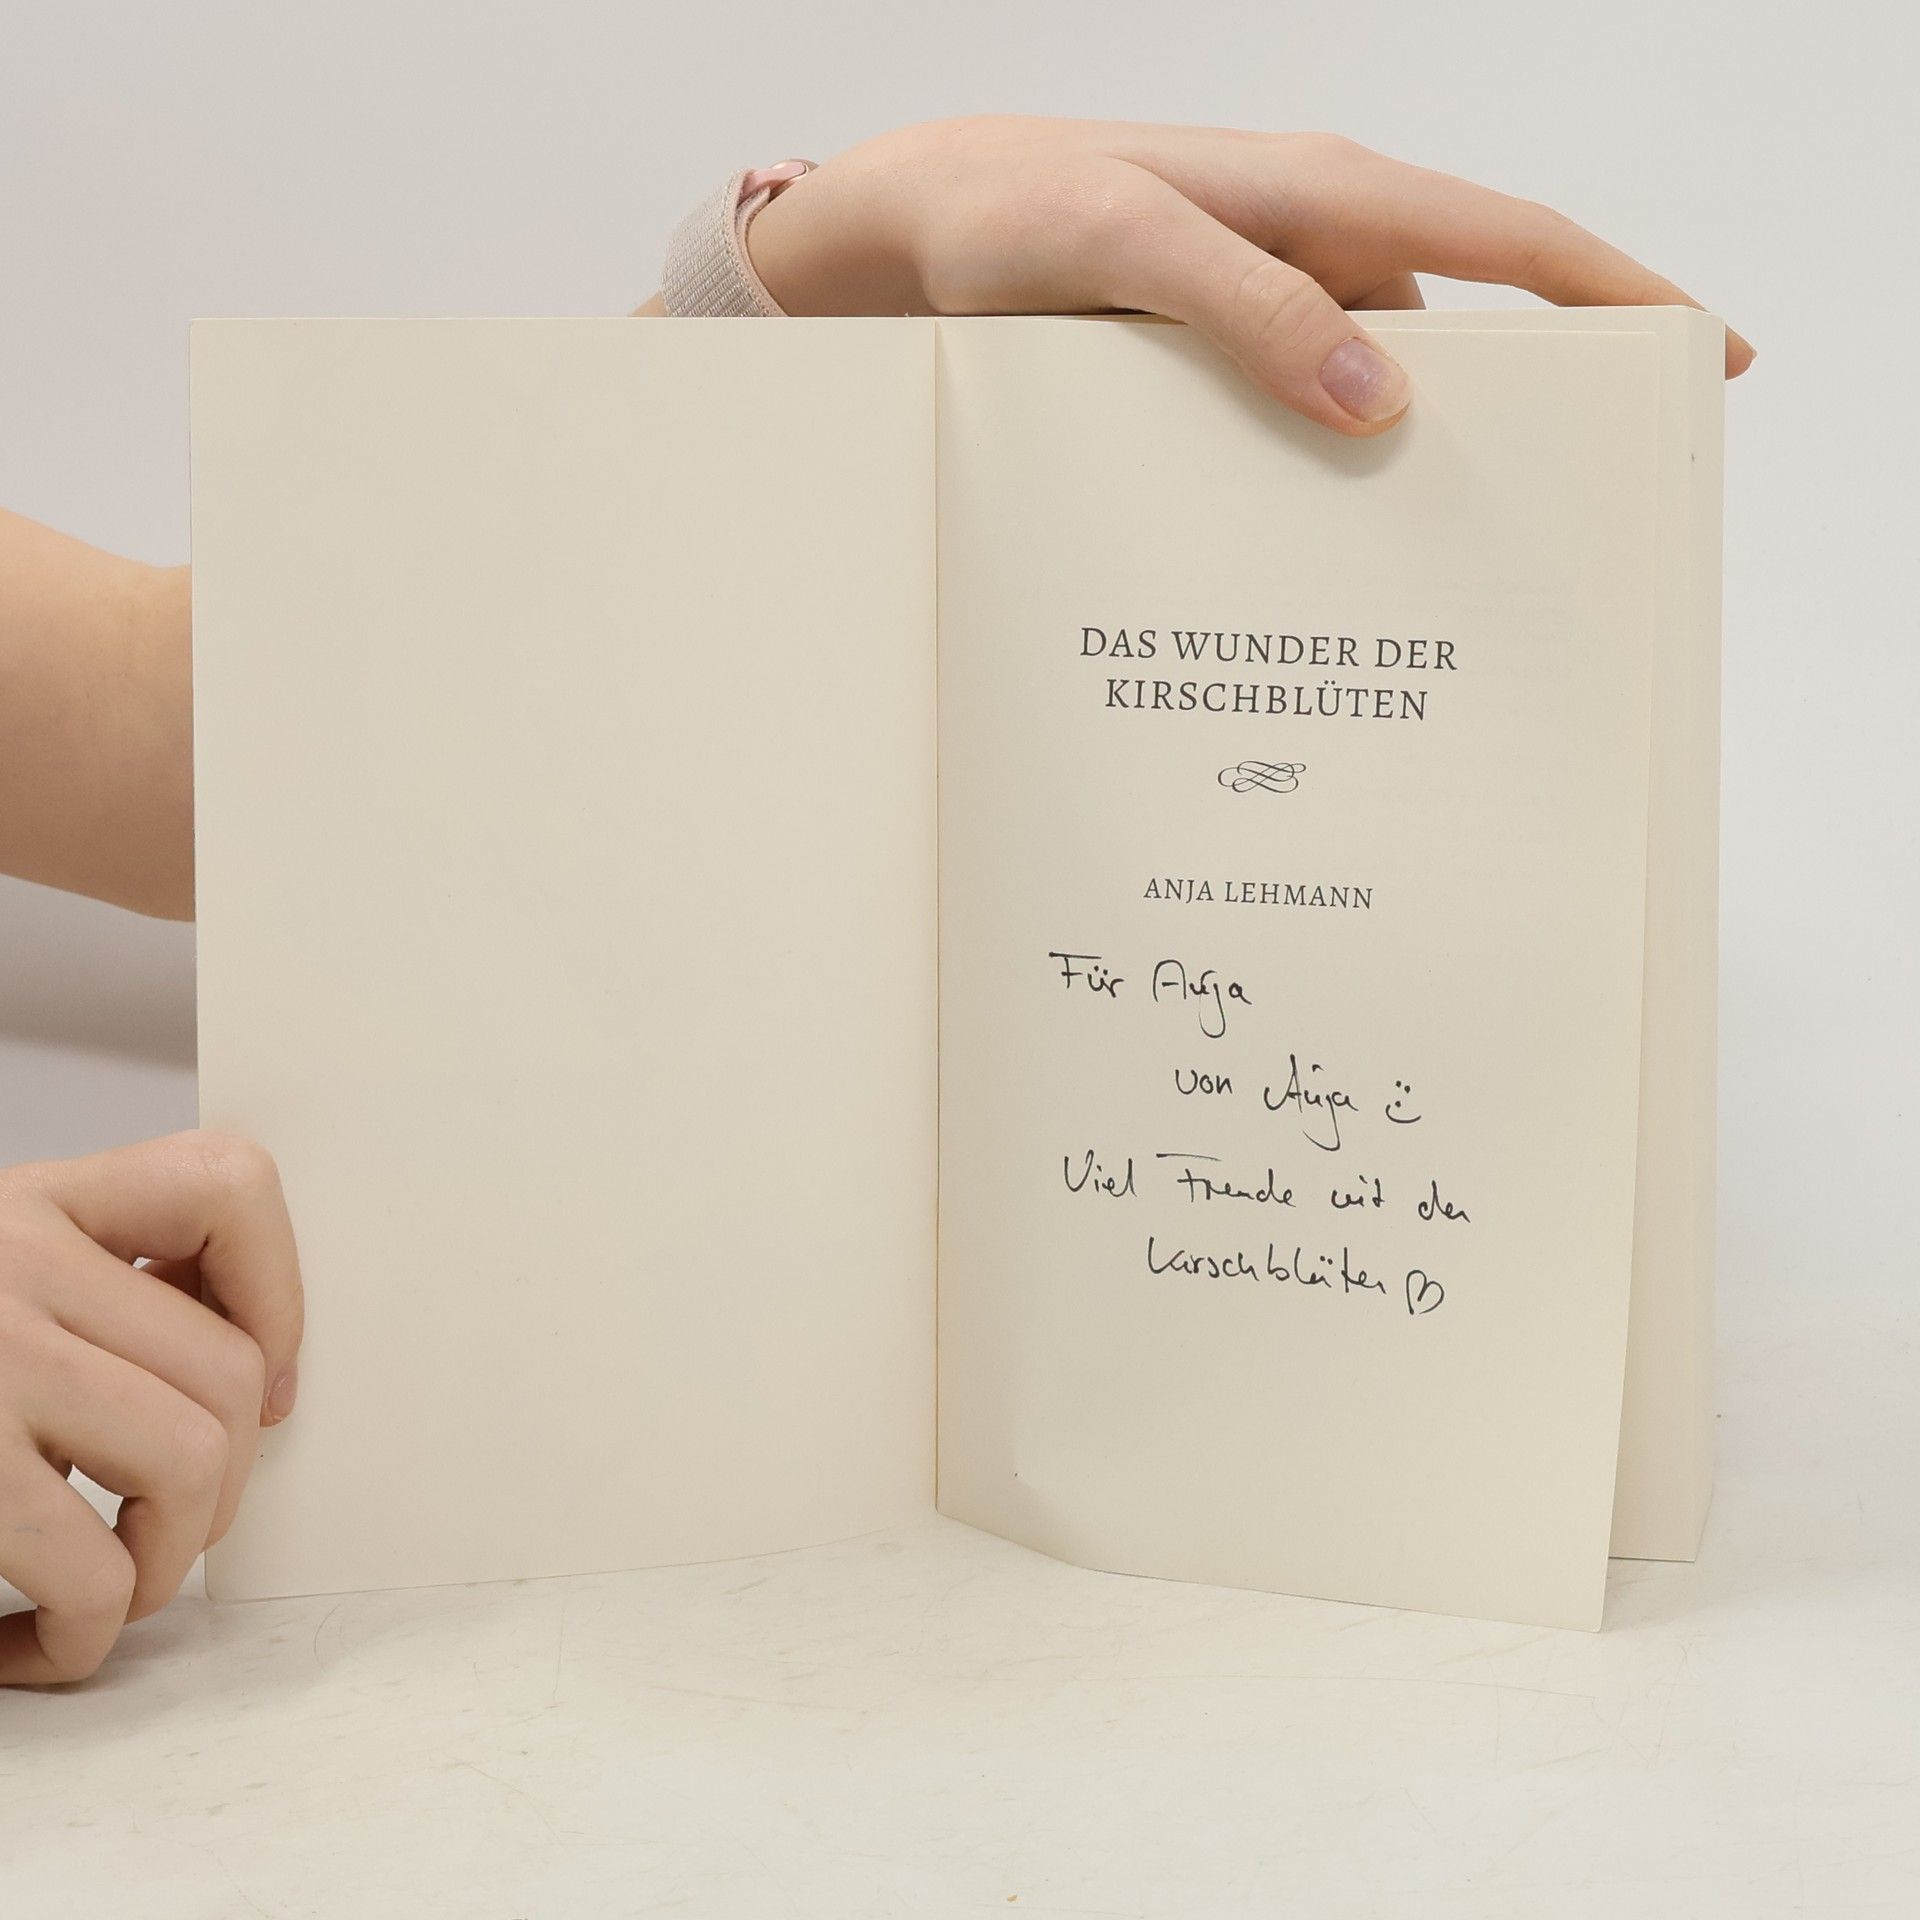 DAS WUNDER DER
KIRSCHBLÜTEN
ANJA LEHMANN
Für Anja
von Anja :)
Viel Freude mit den
Kirschblüten ♡